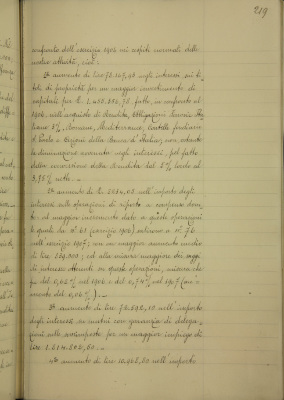 219
confronto dell'esercizio 1906 nei cespiti normali delle
nostre attività, cioè:
1º aumento di lire 73.167,98 sugli interessi sui ti-
toli di proprietà per un maggior investimento di
capitali per L. 1.408.892,75 fatto, in confronto al
1906, nell'acquisto di Rendita, Obbligazioni
3%, Romane, Mediterranee, Cartelle fondiarie
e Azioni della Banca d'Italia, non ostante
la diminuzione avvenuta negli interessi, pel fatto
della conversione della Rendita dal 5% lordo al
3,75% netto.
2º aumento di L. 2054,03 nell'importo degli
interessi sulle operazioni di riporto a
al maggior incremento dato a queste operazioni
le quali da nº 61 (esercizio 1906) salirono a nº 76
nell'esercizio 1907, con un maggior aumento medio
di lire 359.000; ed alla misura maggiore dei saggi
di interesse su queste operazioni, misura che
fu del 0,65% nel 1906 e del 0,71% nel 1907 (au-
mento del 0,06%).
3º aumento di lire 73.592,10 nell'importo
degli interessi su mutui con garanzia di delega-
zioni sulle sovraimposte per un maggior impiego di
lire 1.514.846,60.
4º aumento di lire 10.908,60 nell'importo